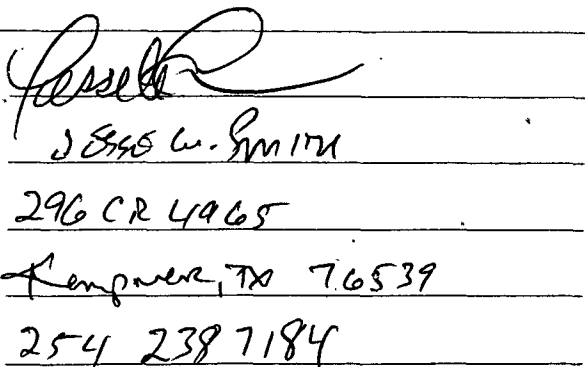 Jesse W. Smith
296 CR 4965
Kempner, TX 76539
254 238 7184